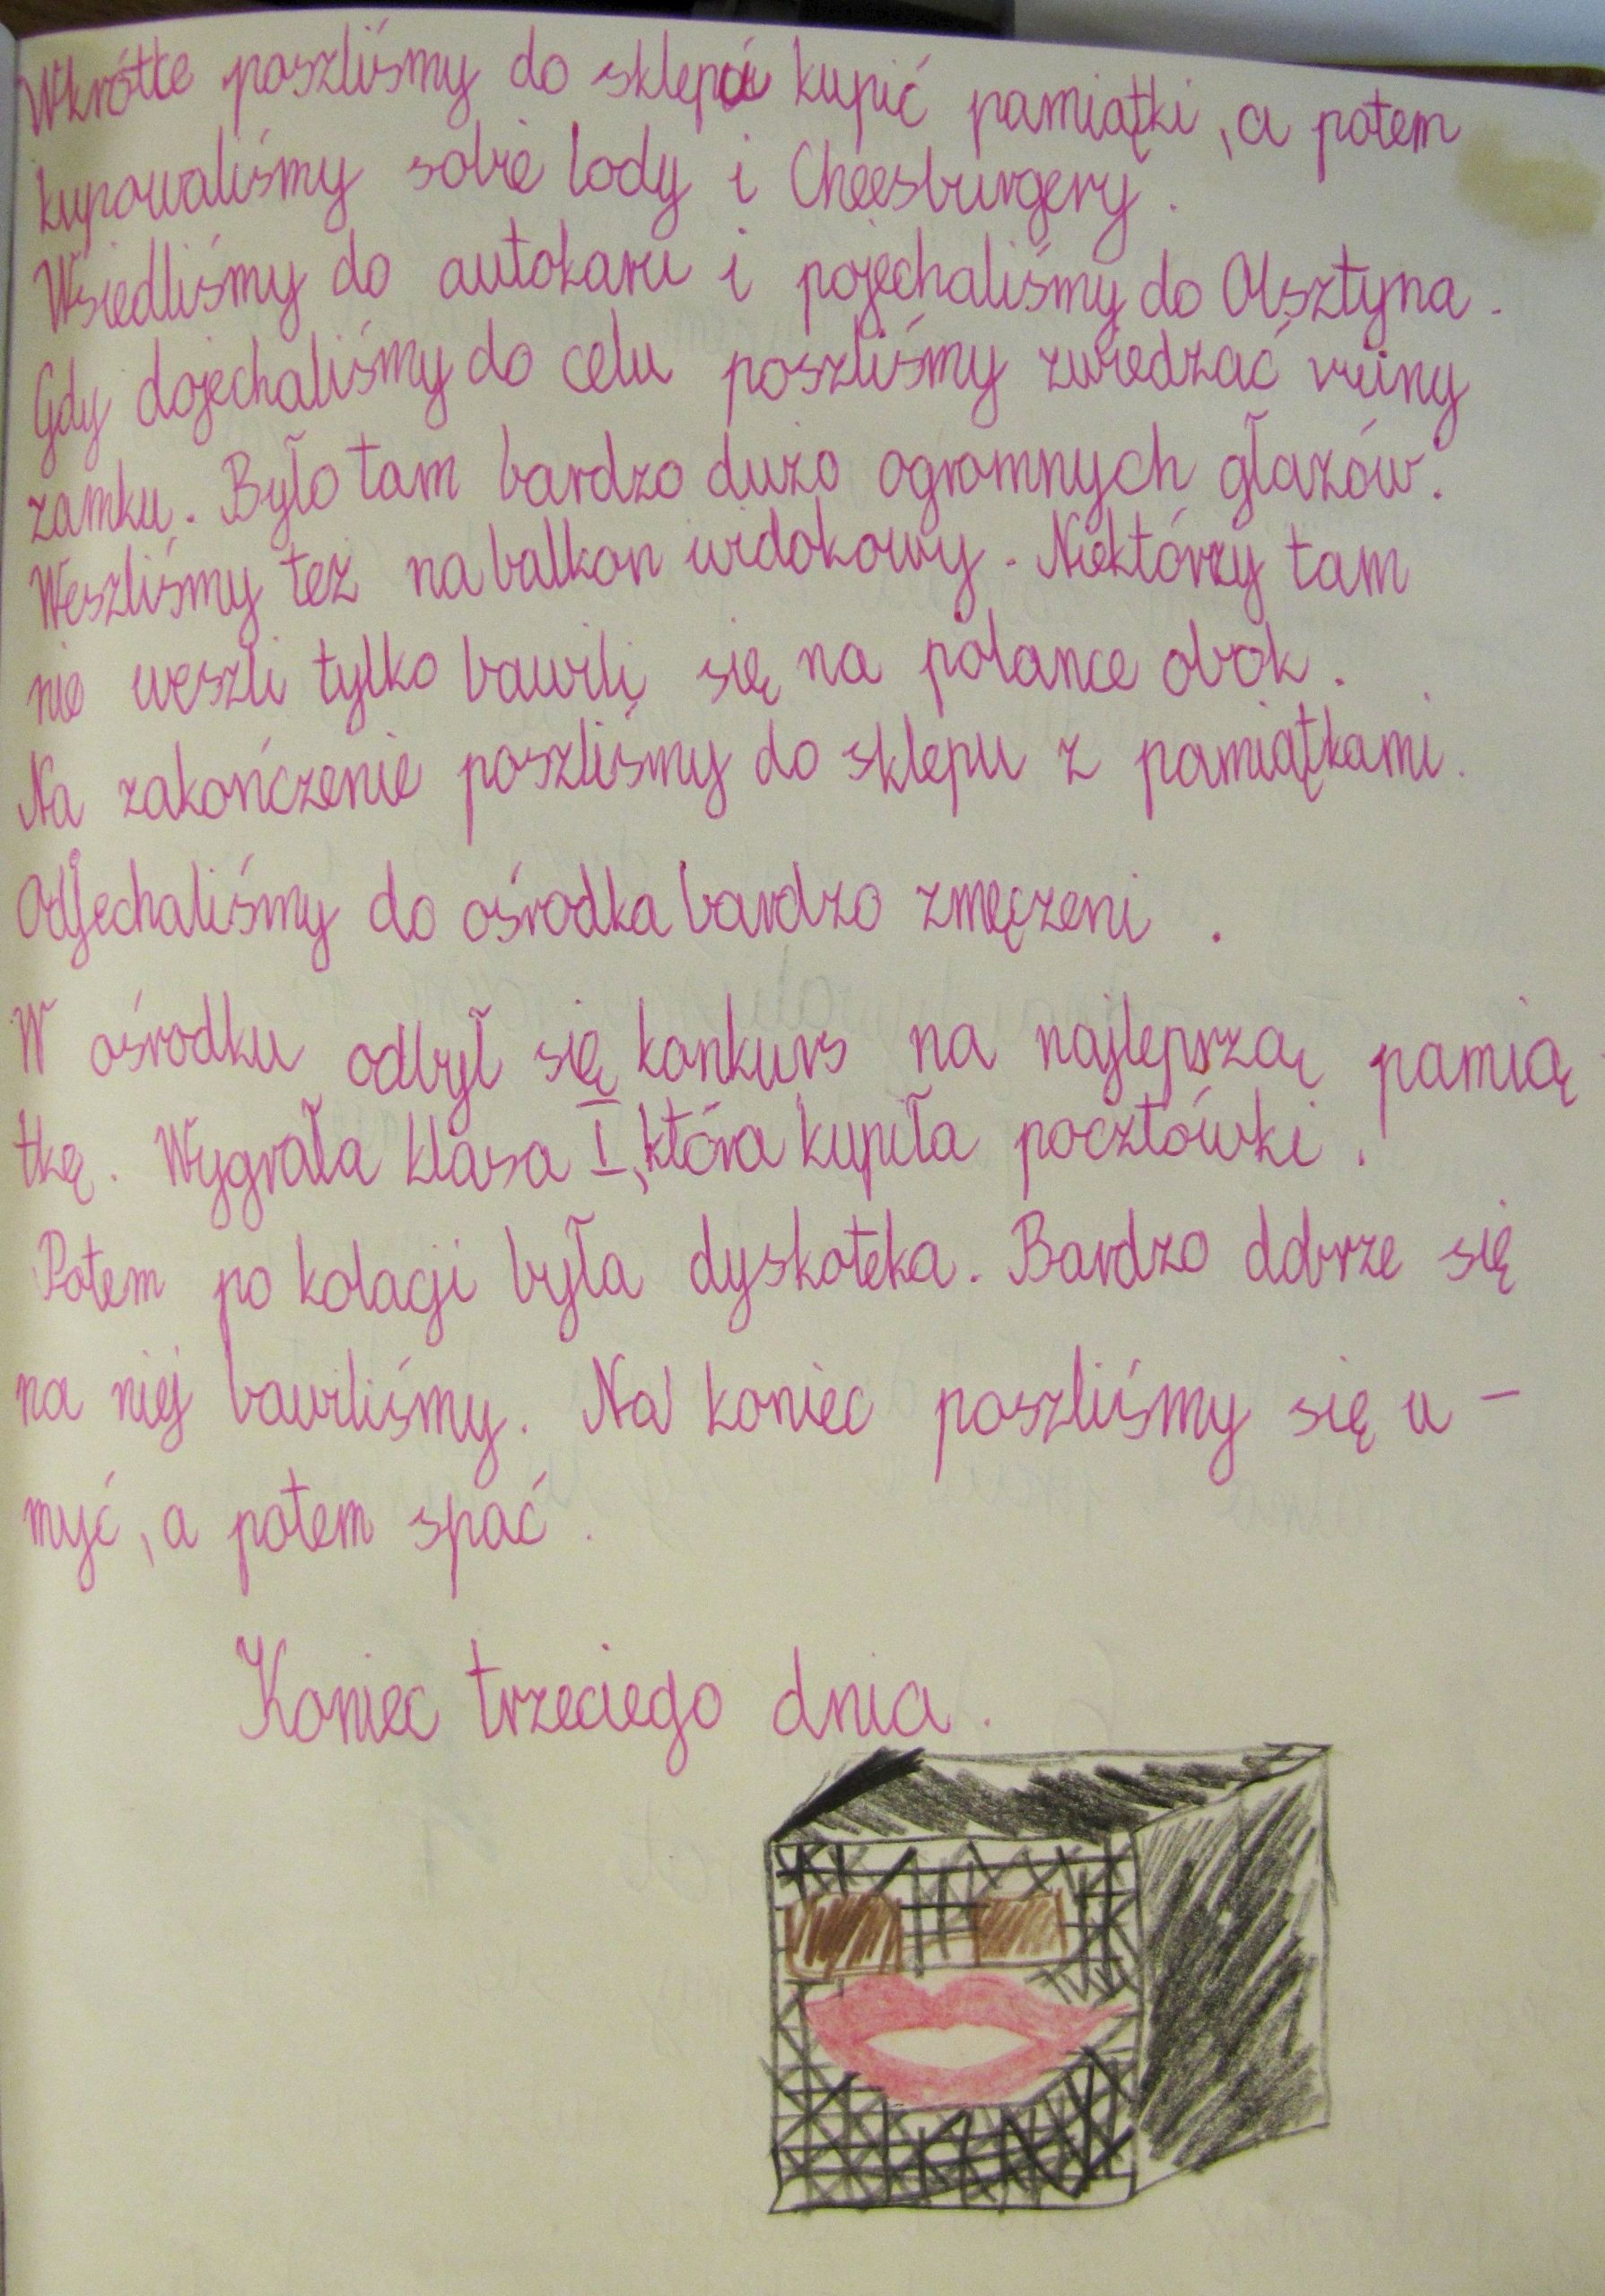 Wkrótce poszliśmy do sklepu kupić pamiątki, a potem
kupowaliśmy sobie lody i Cheesburgery.
Wsiedliśmy do autokaru i pojechaliśmy do Olsztyna.
Gdy dojechaliśmy do celu poszliśmy zwiedzać ruiny
zamku. Było tam bardzo dużo ogromnych głazów.
Weszliśmy też na balkon widokowy. Niektórzy tam
nie weszli tylko bawili się na polance obok.
Na zakończenie poszliśmy do sklepu z pamiątkami.
Odjechaliśmy do ośrodka bardzo zmęczeni.
W ośrodku odbył się konkurs na najleprzą pamią
tkę. Wygrała klasa I, która kupiła pocztówki.
Potem po kolacji była dyskoteka. Bardzo dobrze się
na niej bawiliśmy. Na koniec poszliśmy się u-
myć, a potem spać.
Koniec trzeciego dnia.